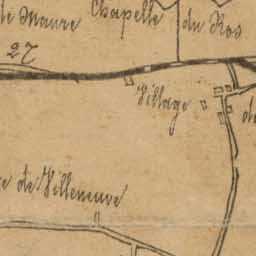 de Maure Chapelle du Ros
27
Village de
de Villeneuve